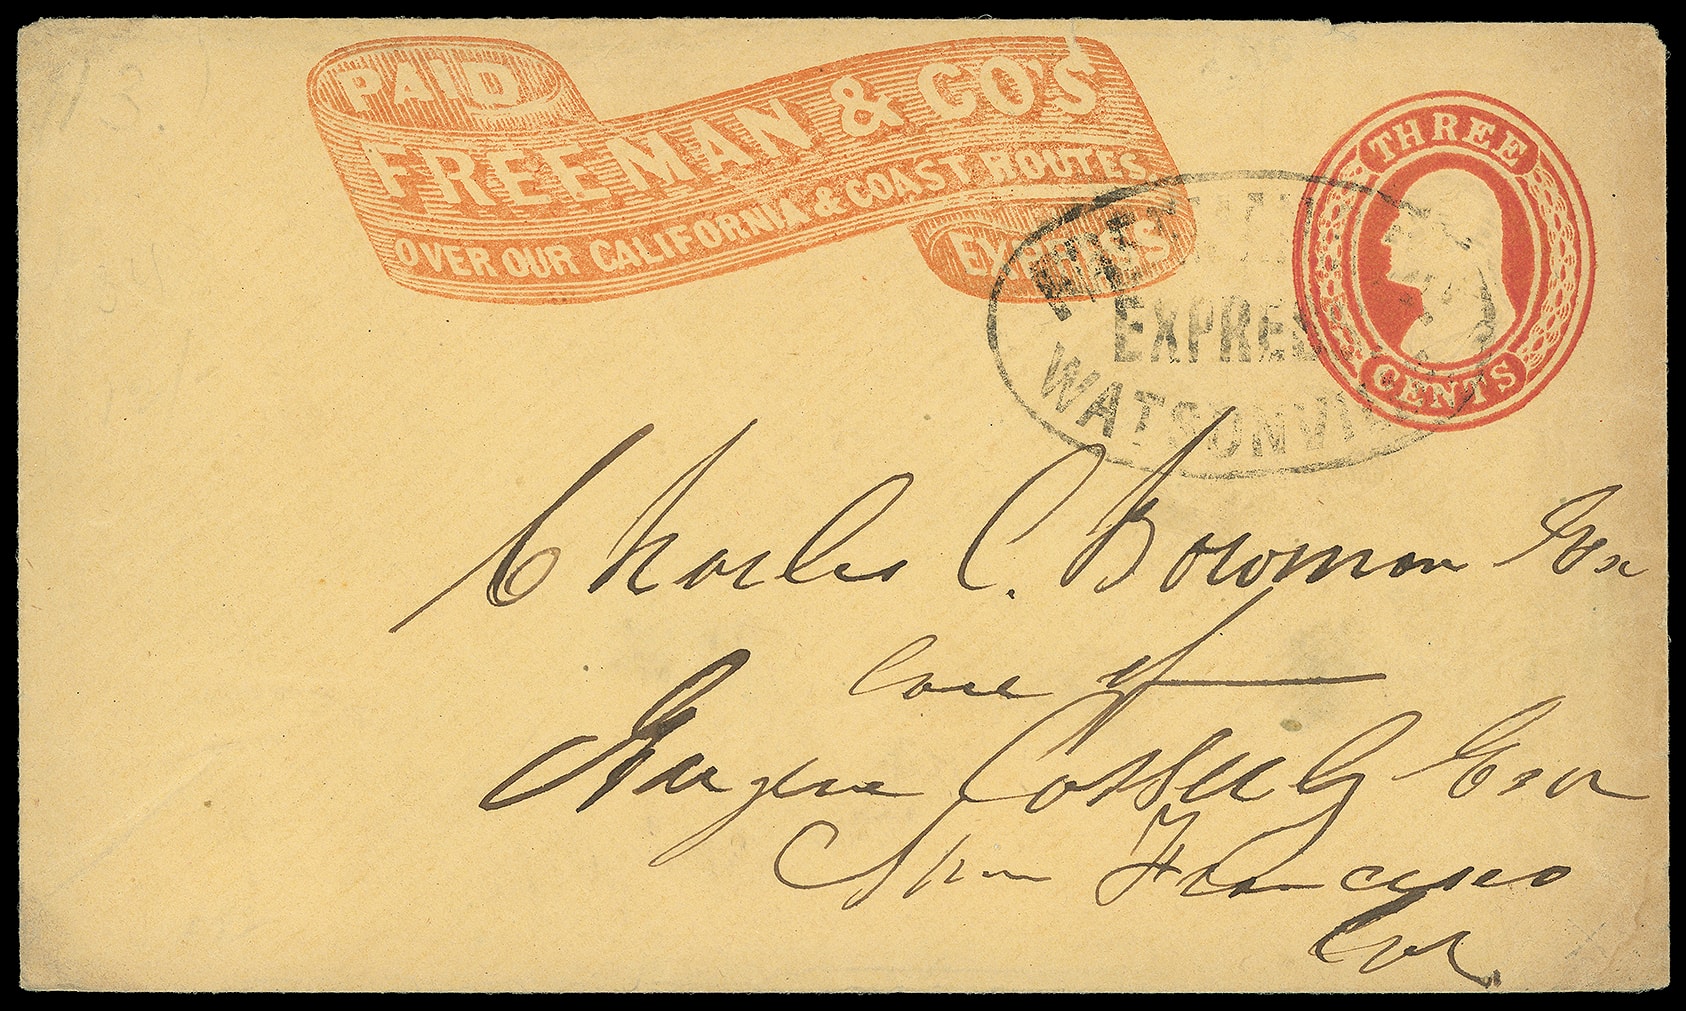 PAID
FREEMAN & CO'S
OVER OUR CALIFORNIA & COAST ROUTES
EXPRESS
THREE
CENTS
EXPRES
WATSONVIL
Charles C. Bowman Esr
care of
Eugene Esr
San Francisco
Cal.